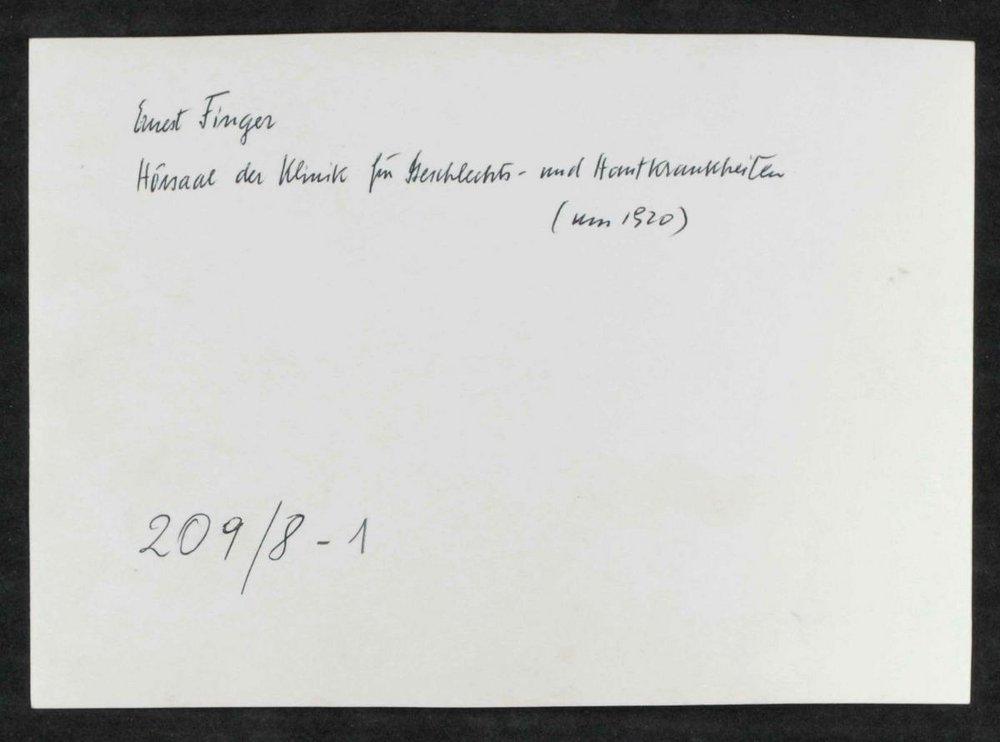 Ernest Finger
Hörsaal der Klinik für Geschlechts- und Hautkrankheiten
(um 1920)
209/8-1